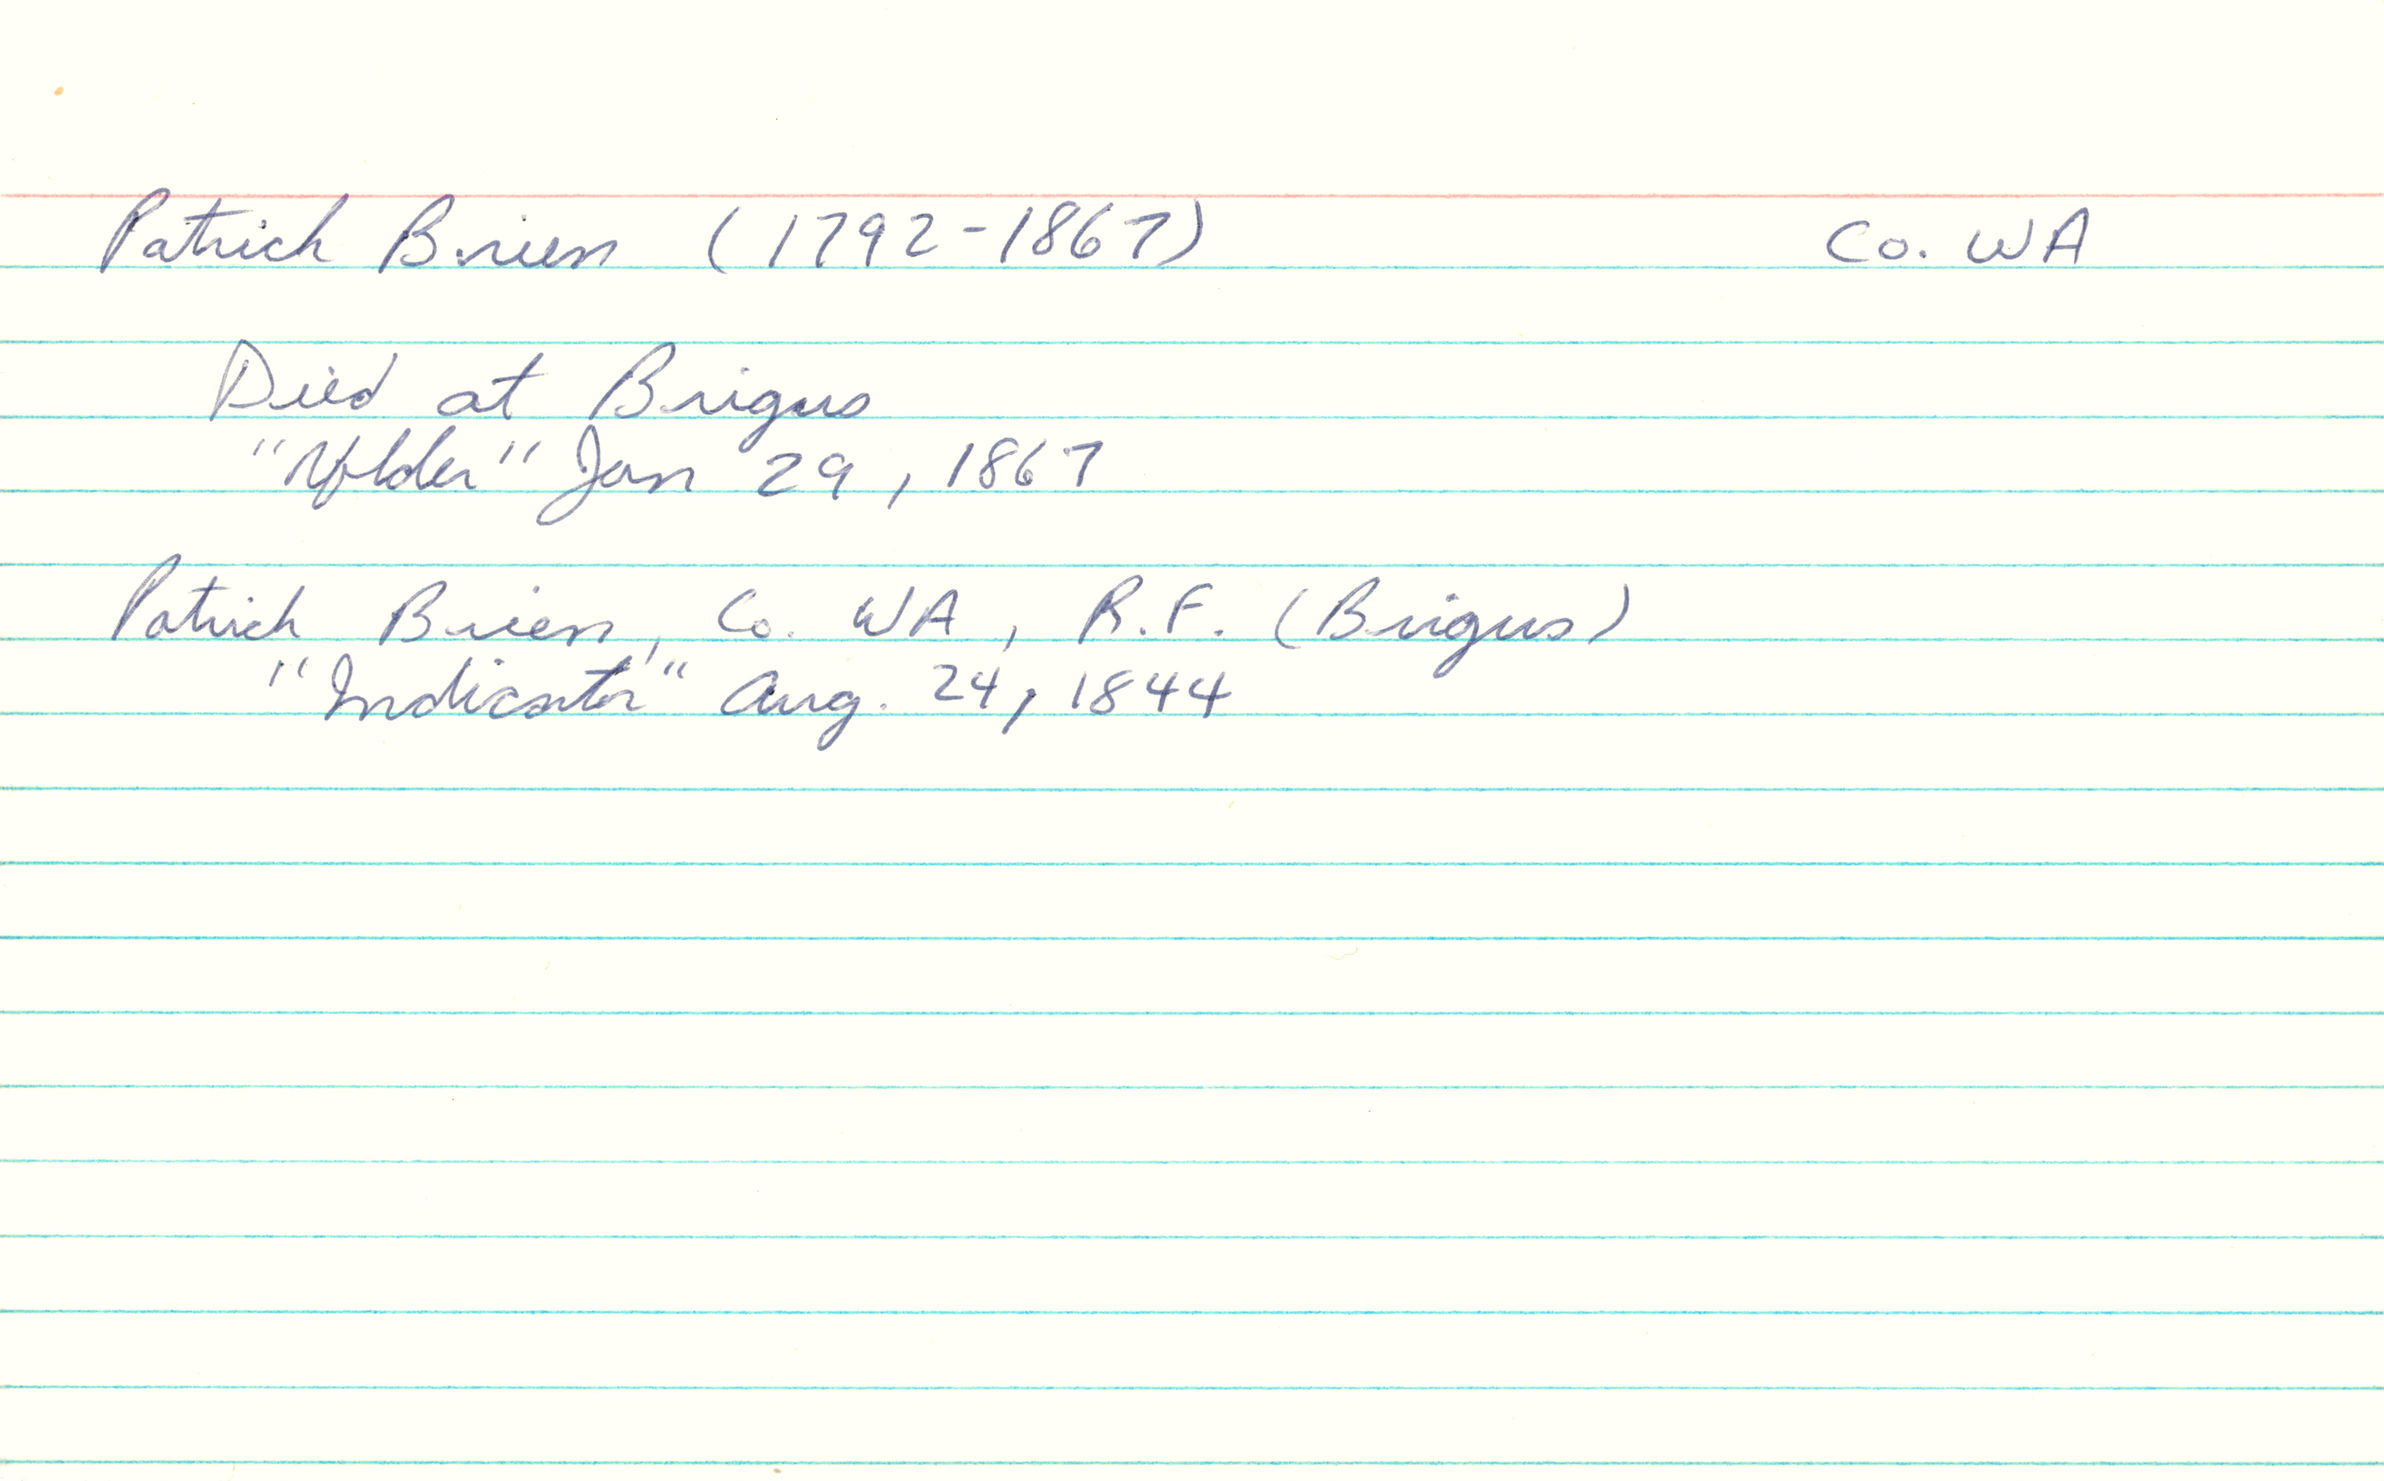 Patrick Brien (1792-1867) Co. WA
Died at Brigus
"Nflder" Jan 29, 1867
Patrick Brien, Co. WA, R.F. (Brigus)
"Indicator" Aug. 24, 1844